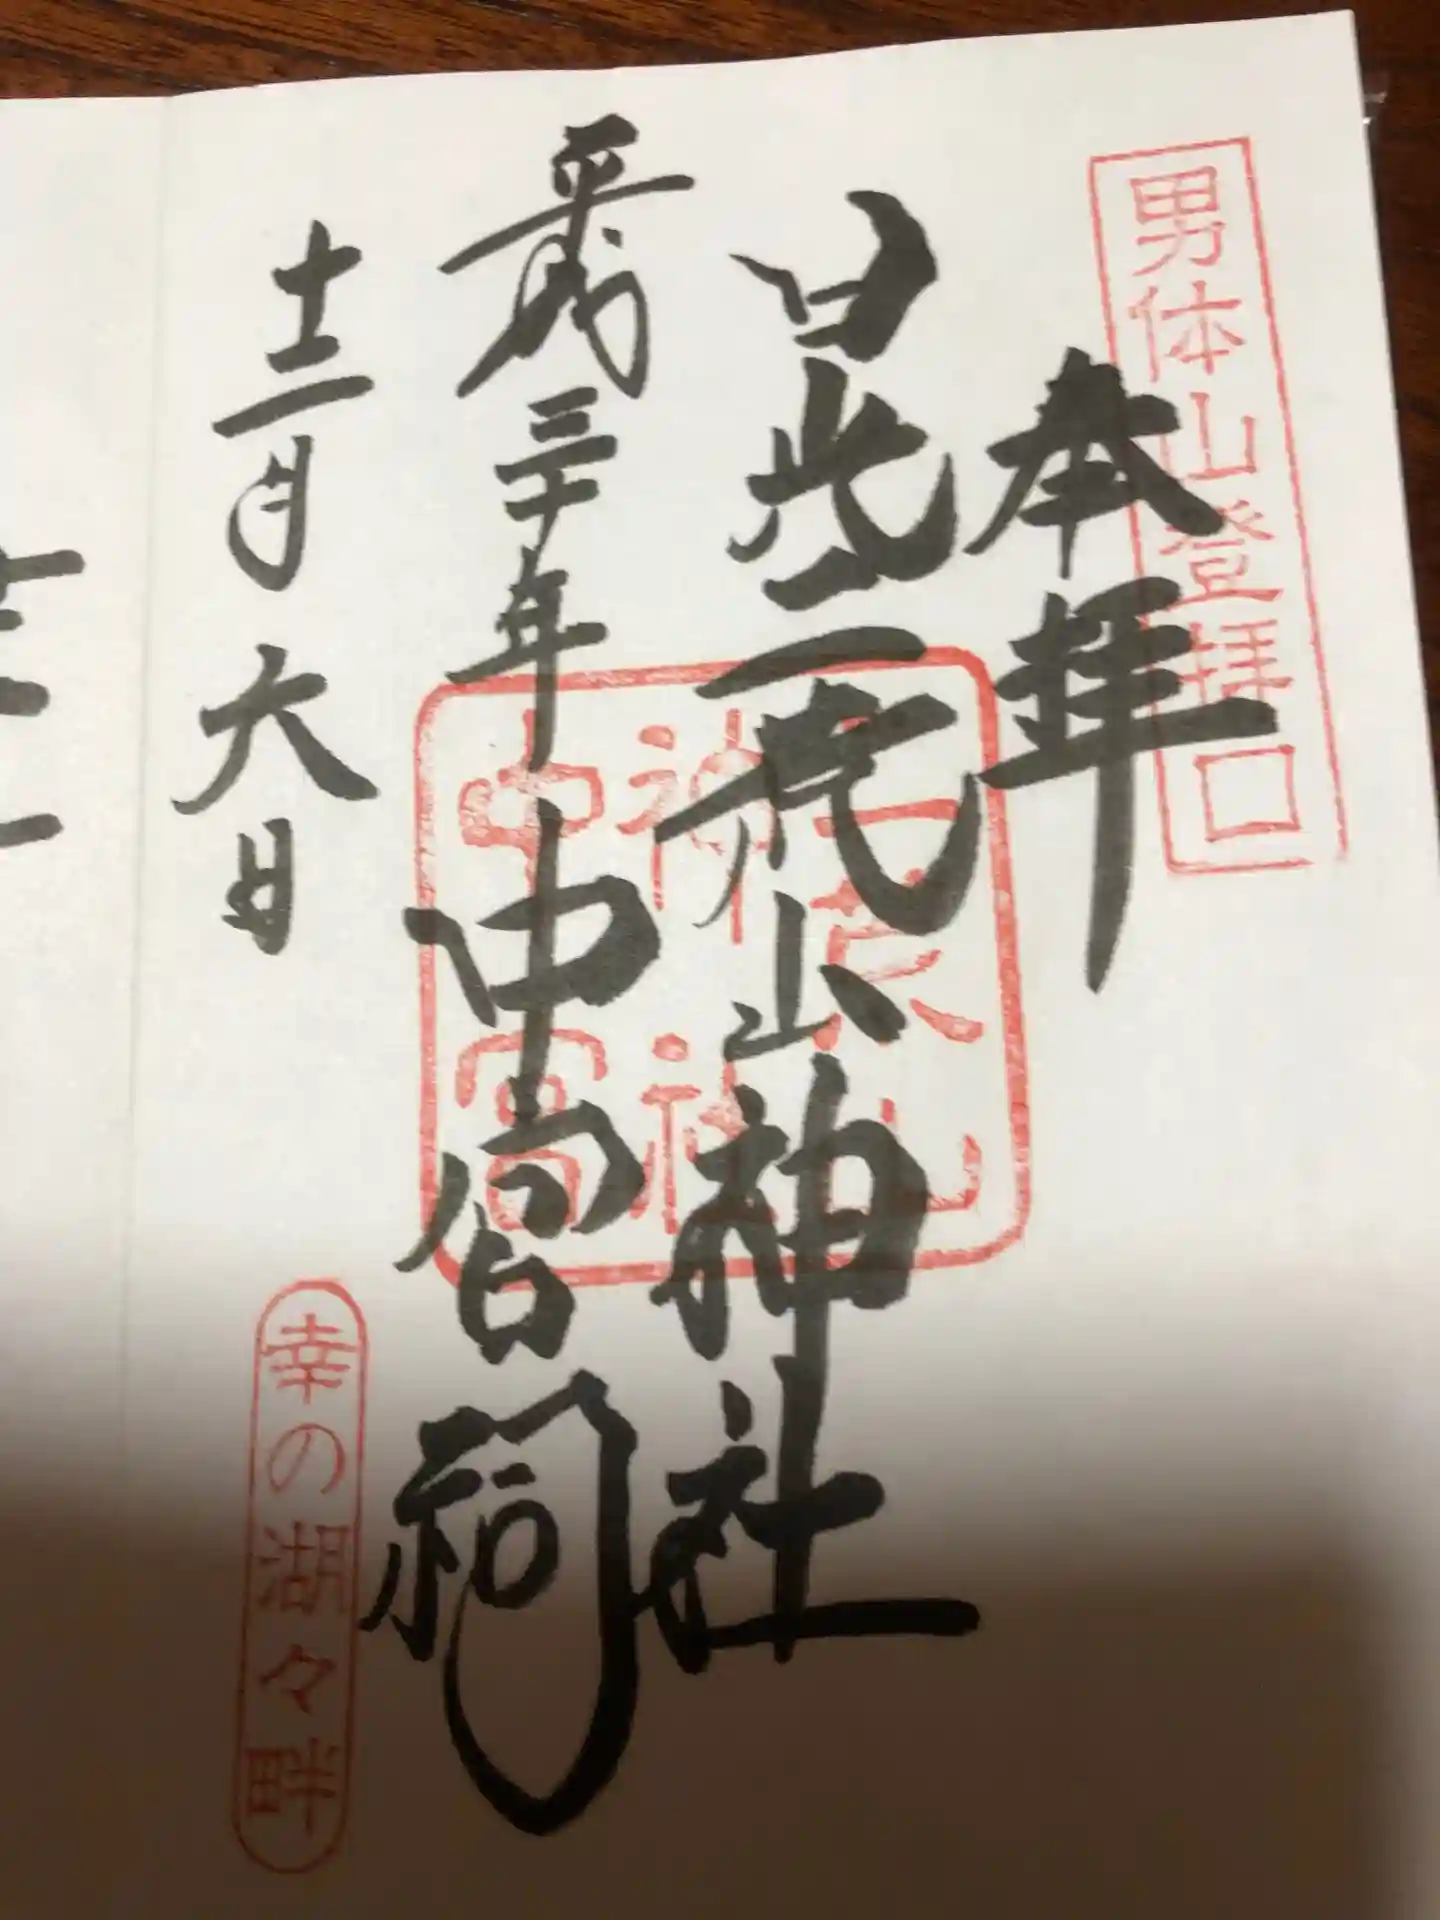 男体山登拝口
奉拝
日光二荒山神社
中宮祠
平成三十年
十二月六日
二荒山
神社
中宮
幸の湖々畔